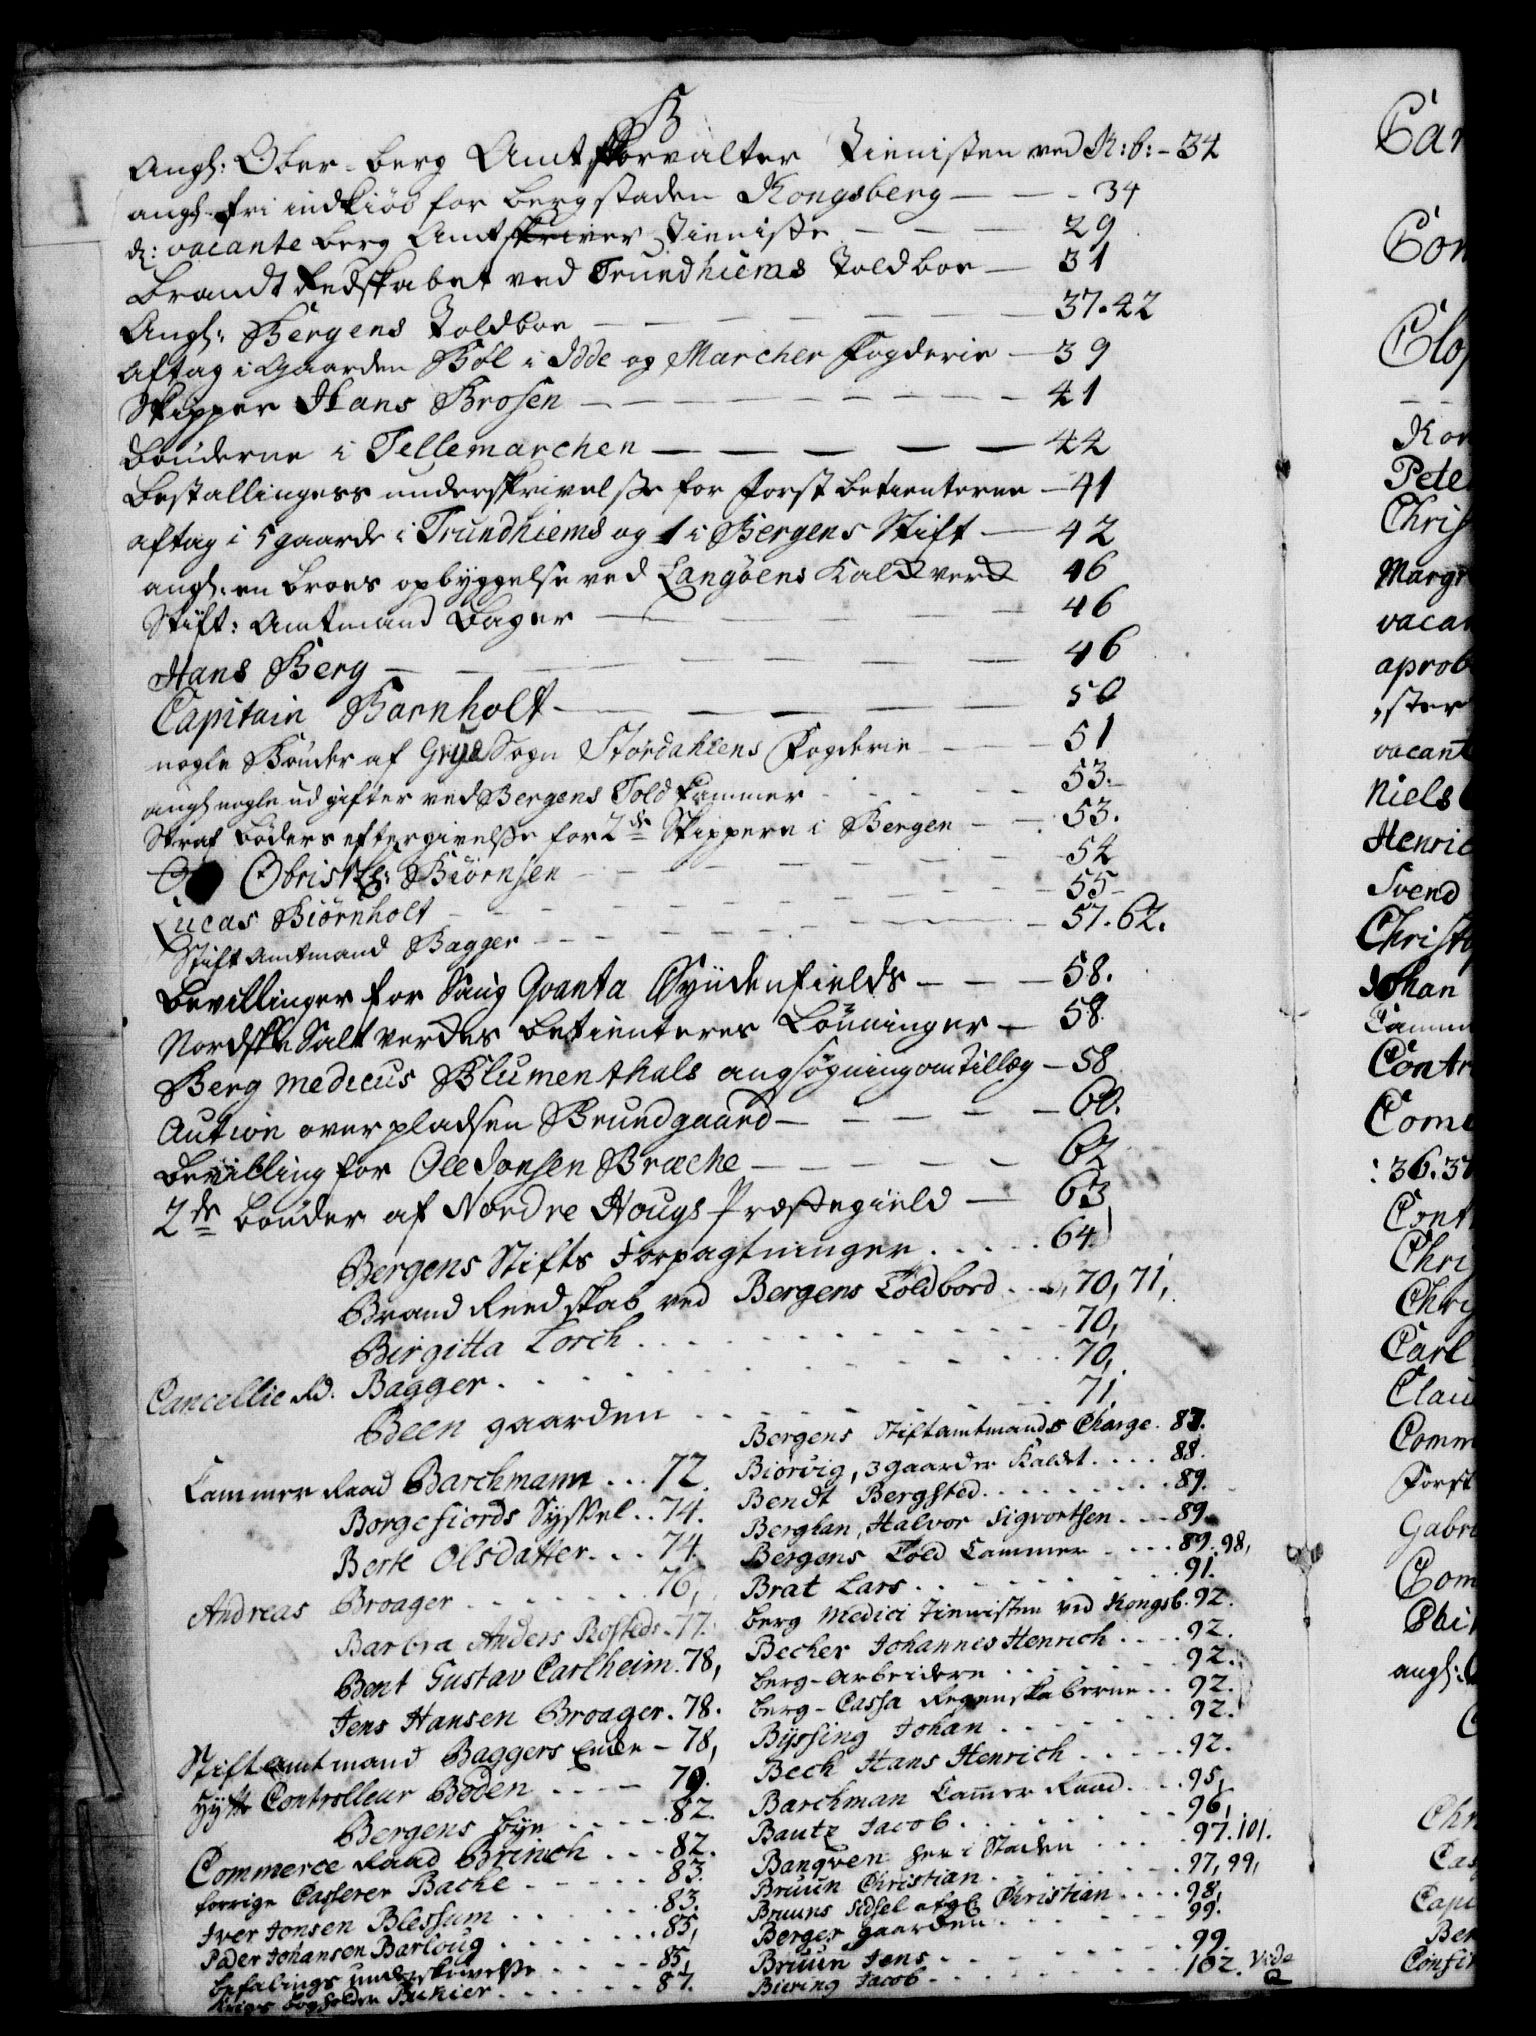 B
Angl: Ober-berg Amtsforvalter Tienisten ved K:b: - 34
angl: fri indkiöb for bergstaden Kongsberg — 34
d: vacante berg Amtskriver Tieniste — 29
Brandt Redskabet ved Trundhiems Toldboe — 31
Angl: Bergens Toldboe — 37.42
Aftag i Gaarden Böl i Idde og Marcher Fogderie — 39
Skipper Hans Brosen — 41
bönderne i Tellemarchen — 44
Bestallingers underskrivelse for Forst betienterne — 41
aftag i 5 gaarde i Trundhiems og 1 i Bergens Stift — 42
angl: en broes opbyggelse ved Langöens Kalkverk 46
Stift: Amtmand Bager — 46
Hans Berg — 46
Capitain Barnholt — 50
nogle Bönder af Sogn Stördahlens Fogderie — 51
angl nogle udgifter ved Bergens Told kammer - 53.
Straf böders eftergivelse for 2de Skippere i Bergen - 53.
Obristl: Biörnsen - 54
Lucas Biörnholt - 55
Stift Amtmand Bagger - 57.62.
Bevillinger for Saug Qvanta Syndenfields — 58.
Nordske Saltverkes betienteres Lönninger — 58.
Berg medicus Blumenthals angsögning om tillæg — 58
Aution over pladsen Brundgaard — 60.
Bevilling for Ole Jonsen Bræche — 62
2de bönder af Nordre Hougs Præstegield — 63
Bergens Stifts Forpagtninger . . . . 64
Brand Reedskab ved Bergens Toldbord . . 70, 71,
Birgitta Lorch . . . 70,
Cancellie Rd. Bagger . . . 70,
Been gaarden . . . 71.
Cammer Raad Barchmann . . . 72.
Borgefiords Syssel . . 74.
Berte Olsdatter . . . 74.
Andreas Broager . . . 76,
Barbra Anders Rosteds . 77.
Bent Gustav Carlheim . 78,
Jens Hansen Broager . 78.
Stiftamtmand Baggers Enke - 78,
Hytte Controlleur Boden . . . 79.
Bergens bye . . . 82.
Commerce Raad Brinch . . . 82.
forrige Casserer Bache . . . 83.
Iver Jonsen Blessum . . . 83.
Peder Johansen Barloug . . . 85,
befalings underskrivelse . . . 85,
Krigs bogholder Buhier . . . 87.
Bergens Stiftamtmands Charge . 87.
Biörvig, 3 gaarder kaldet . . . . 88.
Bendt Bergsted . . . 89.
Berghan, Halvor Sigvortsen . . . 89.
Bergens Told Cammer . . . 89. 98,
Brat Lars . . . 91.
berg Medici Tienisten ved Kongsb. 92.
Becher Johannes Henrich . . . 92.
berg-Arbeidere . . . 92.
berg-Cassa Regenskaberne . . 92.
Byssing Johan . . . 92.
Bech Hans Henrich . . . 92.
Barchman Cammer Raad . . . 95,
Bautz Jacob . . . 96,
Banqven her i Staden . . . 97. 101.
Bruun Christian . . . 97, 99,
Bruuns Sidsel afgl Christian . . . 98,
Berger gaarden . . . 99.
Bruun Jens . . . 99.
Biering Jacob . . . 102. vide
Car
Con
Clo
Kon
Pete
Chris
Margr
vacan
aprob
ster
vacant
Niels
Henric
Svend
Christo
Johan
Camm
Contr
Come
: 36. 37
Cont
Chri
Chri
Carl
Clau
Comm
Forst
Gabri
Com
angl:
Chr
Cas
Capi
Ber
Consi